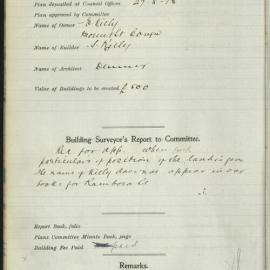 Plan deposited at Council Offices 29-8-18
Plan approved by Committee
Name of Owner - Kelly
Name of Builder - S. Kelly
Name of Architect
Value of Buildings to be erected £ 800
Building Surveyor's Report to Committee.
Ret for app. when
particulars of position of the land is given
the name of Kelly does not appear in our
books for
Report Book, folio
Plans Committee Minute Book, page
Building Fee Paid paid
Remarks.